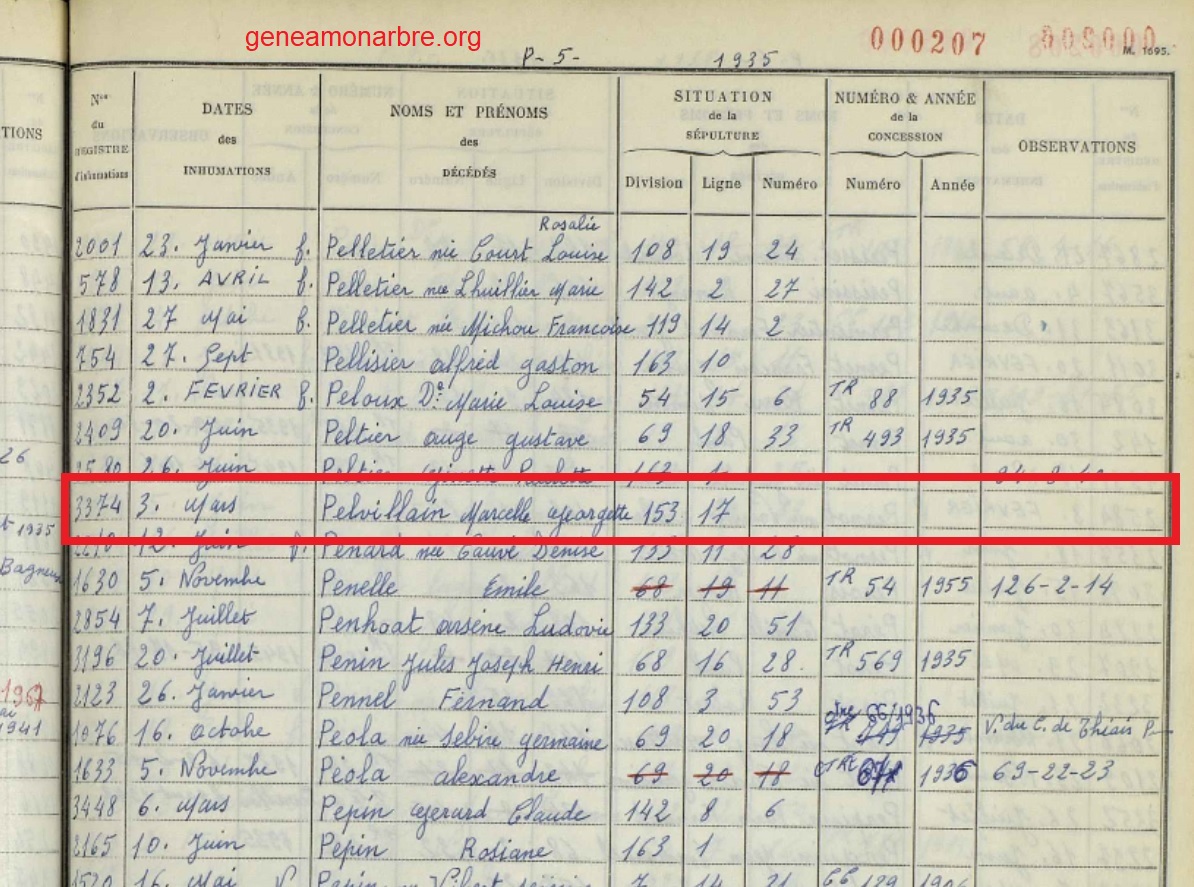 geneamonarbre.org
000207
M. 1695.
P- 5- 1935
TIONS
Nos du REGISTRE d'inhumations
DATES des INHUMATIONS
NOMS ET PRÉNOMS des DÉCÉDÉS
SITUATION de la SÉPULTURE
NUMÉRO & ANNÉE de la CONCESSION
OBSERVATIONS
Division Ligne Numéro Numéro Année
Rosalie
2001 23. Janvier f. Pelletier née Court Louise 108 19 24
578 13. AVRIL f. Pelletier née Lhuillier Marie 142 2 27
1831 27 Mai f. Pelletier née Michou Francoise 119 14 2
754 27. Sept Pellisier alfred gaston 163 10
2352 2. FEVRIER f. Peloux De Marie Louise 54 15 6 TR 88 1935
2409 20. Juin Peltier auge gustave 69 18 33 TR 493 1935
26
26. Juin Peltier 163 1
3374 3. Mars Pelvillain Marcelle Georgette 153 17
1935
12. Juin f. Penard née Cauvé Denise 133 11 28
Bagneux
1630 5. Novembre Penelle Emile 68 19 11 TR 54 1955 126-2-14
2854 7. Juillet Penhoat arsène Ludovic 133 20 51
3196 20. Juillet Penin Jules Joseph Henri 68 16 28. TR 569 1935
1967
2123 26. Janvier Pennel Fernand 108 3 53
1941
66/1936
1976 16. octobre Péola née Sebire germaine 69 20 18 TR 1935 V. du C. de Thiais P-
1633 5. Novembre Péola alexandre 69 20 18 1936 69-22-23
3448 6. Mars Pepin Gerard Claude 142 8 6
2165 10. Juin Pepin Rosiane 163 1
16. Mai 7 14 21 129 1906